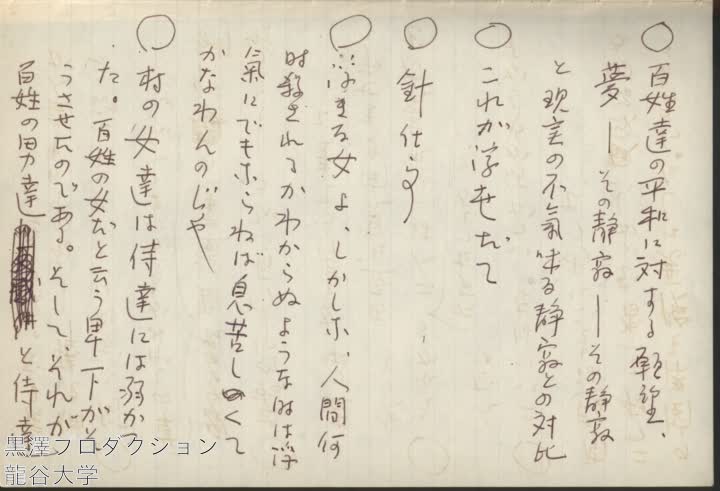 ○ 百姓達の平和に対する願望、
夢 ― その静寂 ― その静寂
と現実の不氣味な静寂との対比
○ これが浮世だて
○ 針仕事
○ 浮きる女よ、しかしな、人間何
時殺されるかわからぬような時は浮
氣にでもならねば息苦しくて
かなわんのじや
○ 村の女達は侍達には弱かつ
た。百姓の女だと云う卑下がそ
うさせたのである。そして、それが
百姓の男達 と侍達
黒澤プロダクション
龍谷大学